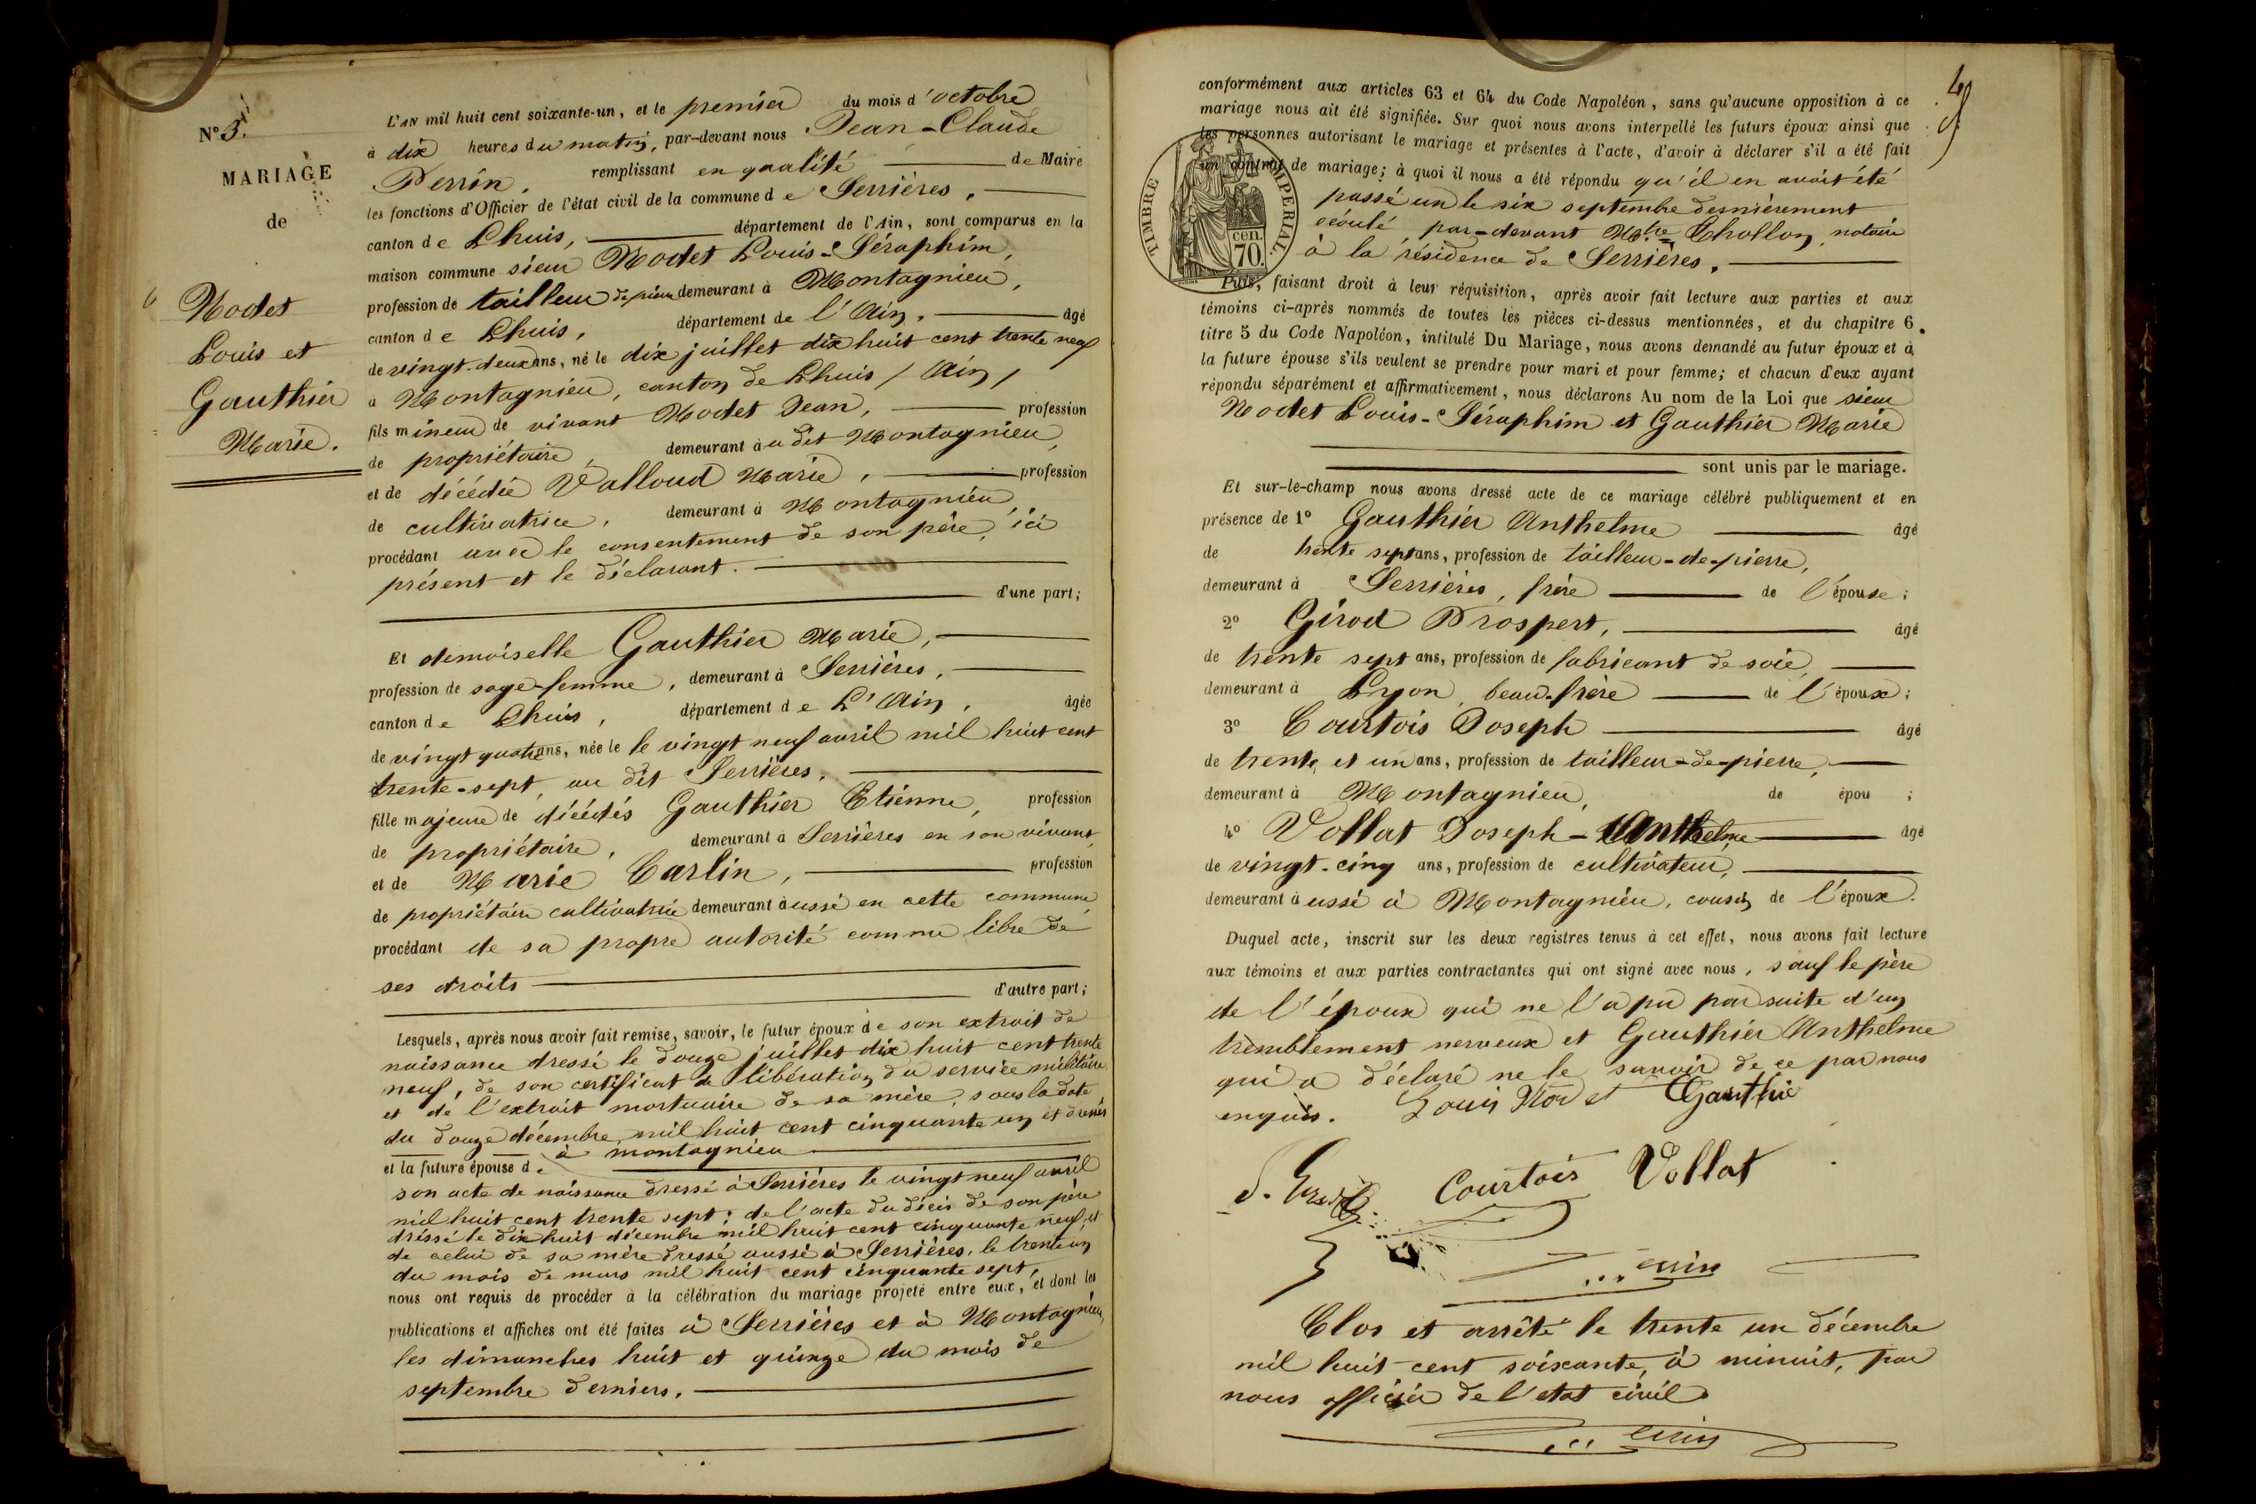 N° 3.
MARIAGE
de
Nodet
Louis et
Gauthier
Marie.
L'AN mil huit cent soixante-un, et le premier du mois d'octobre
à dix heures du matin, par-devant nous Jean-Claude
Perrin, remplissant en qualité de Maire
les fonctions d'Officier de l'état civil de la commune de Serrières,
canton de Lhuis, département de l'Ain, sont comparus en la
maison commune sieur Nodet Louis-Séraphim,
profession de tailleur de pierre demeurant à Montagnieu,
canton de Lhuis, département de l'Ain, âgé
de vingt-deux ans, né le dix juillet dix huit cent trente neuf
à Montagnieu, canton de Lhuis / Ain /
fils mineur de vivant Nodet Jean, profession
de propriétaire, demeurant au dit Montagnieu,
et de décédée Valloud Marie, profession
de cultivatrice, demeurant à Montagnieu,
procédant avec le consentement de son père, ici
présent et le déclarant.
d'une part;
Et demoiselle Gauthier Marie,
profession de sage-femme, demeurant à Serrières,
canton de Lhuis, département de L'Ain, âgée
de vingt quatre ans, née le le vingt neuf avril mil huit cent
trente-sept, au dit Serrières.
fille majeure de décédés Gauthier Etienne, profession
de propriétaire, demeurant à Serrières en son vivant,
et de Marie Carlin, profession
de propriétaire cultivatrice demeurant aussi en cette commune
procédant de sa propre autorité comme libre de
ses droits
d'autre part;
Lesquels, après nous avoir fait remise, savoir, le futur époux de son extrait de
naissance dressé le douze juillet dix huit cent trente
neuf, de son certificat de libération du service militaire
et de l'extrait mortuaire de sa mère, sous la date
du douze décembre mil huit cent cinquante un et dressés
à montagnieu
et la future épouse d.
son acte de naissance dressé à Serrières le vingt neuf avril
mil huit cent trente sept; de l'acte du décès de son père
dressé le dix huit décembre mil huit cent cinquante neuf, et
de celui de sa mère dressé aussi à Serrières, le trente un
du mois de mars mil huit cent cinquante sept,
nous ont requis de procéder à la célébration du mariage projeté entre eux, et dont les
publications et affiches ont été faites à Serrières et à Montagnieu,
les dimanches huit et quinze du mois de
septembre derniers.
conformément aux articles 63 et 64 du Code Napoléon, sans qu'aucune opposition à ce
mariage nous ait été signifiée. Sur quoi nous avons interpellé les futurs époux ainsi que
les personnes autorisant le mariage et présentes à l'acte, d'avoir à déclarer s'il a été fait
un contrat de mariage; à quoi il nous a été répondu qu'il en avait été
passé un le six septembre dernièrement
écoulé, par-devant Mtre Chollon, notaire
à la résidence de Serrières.
TIMBRE IMPERIAL
cen. 70.
Puis, faisant droit à leur réquisition, après avoir fait lecture aux parties et aux
témoins ci-après nommés de toutes les pièces ci-dessus mentionnées, et du chapitre 6
titre 5 du Code Napoléon, intitulé Du Mariage, nous avons demandé au futur époux et à
la future épouse s'ils veulent se prendre pour mari et pour femme; et chacun d'eux ayant
répondu séparément et affirmativement, nous déclarons Au nom de la Loi que sieur
Nodet Louis-Séraphim et Gauthier Marie
sont unis par le mariage.
Et sur-le-champ nous avons dressé acte de ce mariage célébré publiquement et en
présence de 1° Gauthier Anthelme âgé
de trente sept ans, profession de tailleur-de-pierre,
demeurant à Serrières, frère de l'épouse;
2° Girod Prospert, âgé
de trente sept ans, profession de fabricant de soie,
demeurant à Lyon, beau-frère de l'époux;
3° Courtois Joseph âgé
de trente et un ans, profession de tailleur-de-pierre,
demeurant à Montagnieu, de épou ;
4° Vollat Joseph-Anthelme âgé
de vingt-cinq ans, profession de cultivateur,
demeurant aussi à Montagnieu, cousin de l'époux.
Duquel acte, inscrit sur les deux registres tenus à cet effet, nous avons fait lecture
aux témoins et aux parties contractantes qui ont signé avec nous, sauf le père
de l'époux qui ne l'a pu par suite d'un
tremblement nerveux et Gauthier Anthelme
qui a déclaré ne le savoir de ce par nous
enquis. Louis Nodet Gauthie
Courtois Vollat
Perrin
Clos et arrêté le trente un décembre
mil huit cent soixante, à minuit, par
nous officier de l'etat civil
Perrin